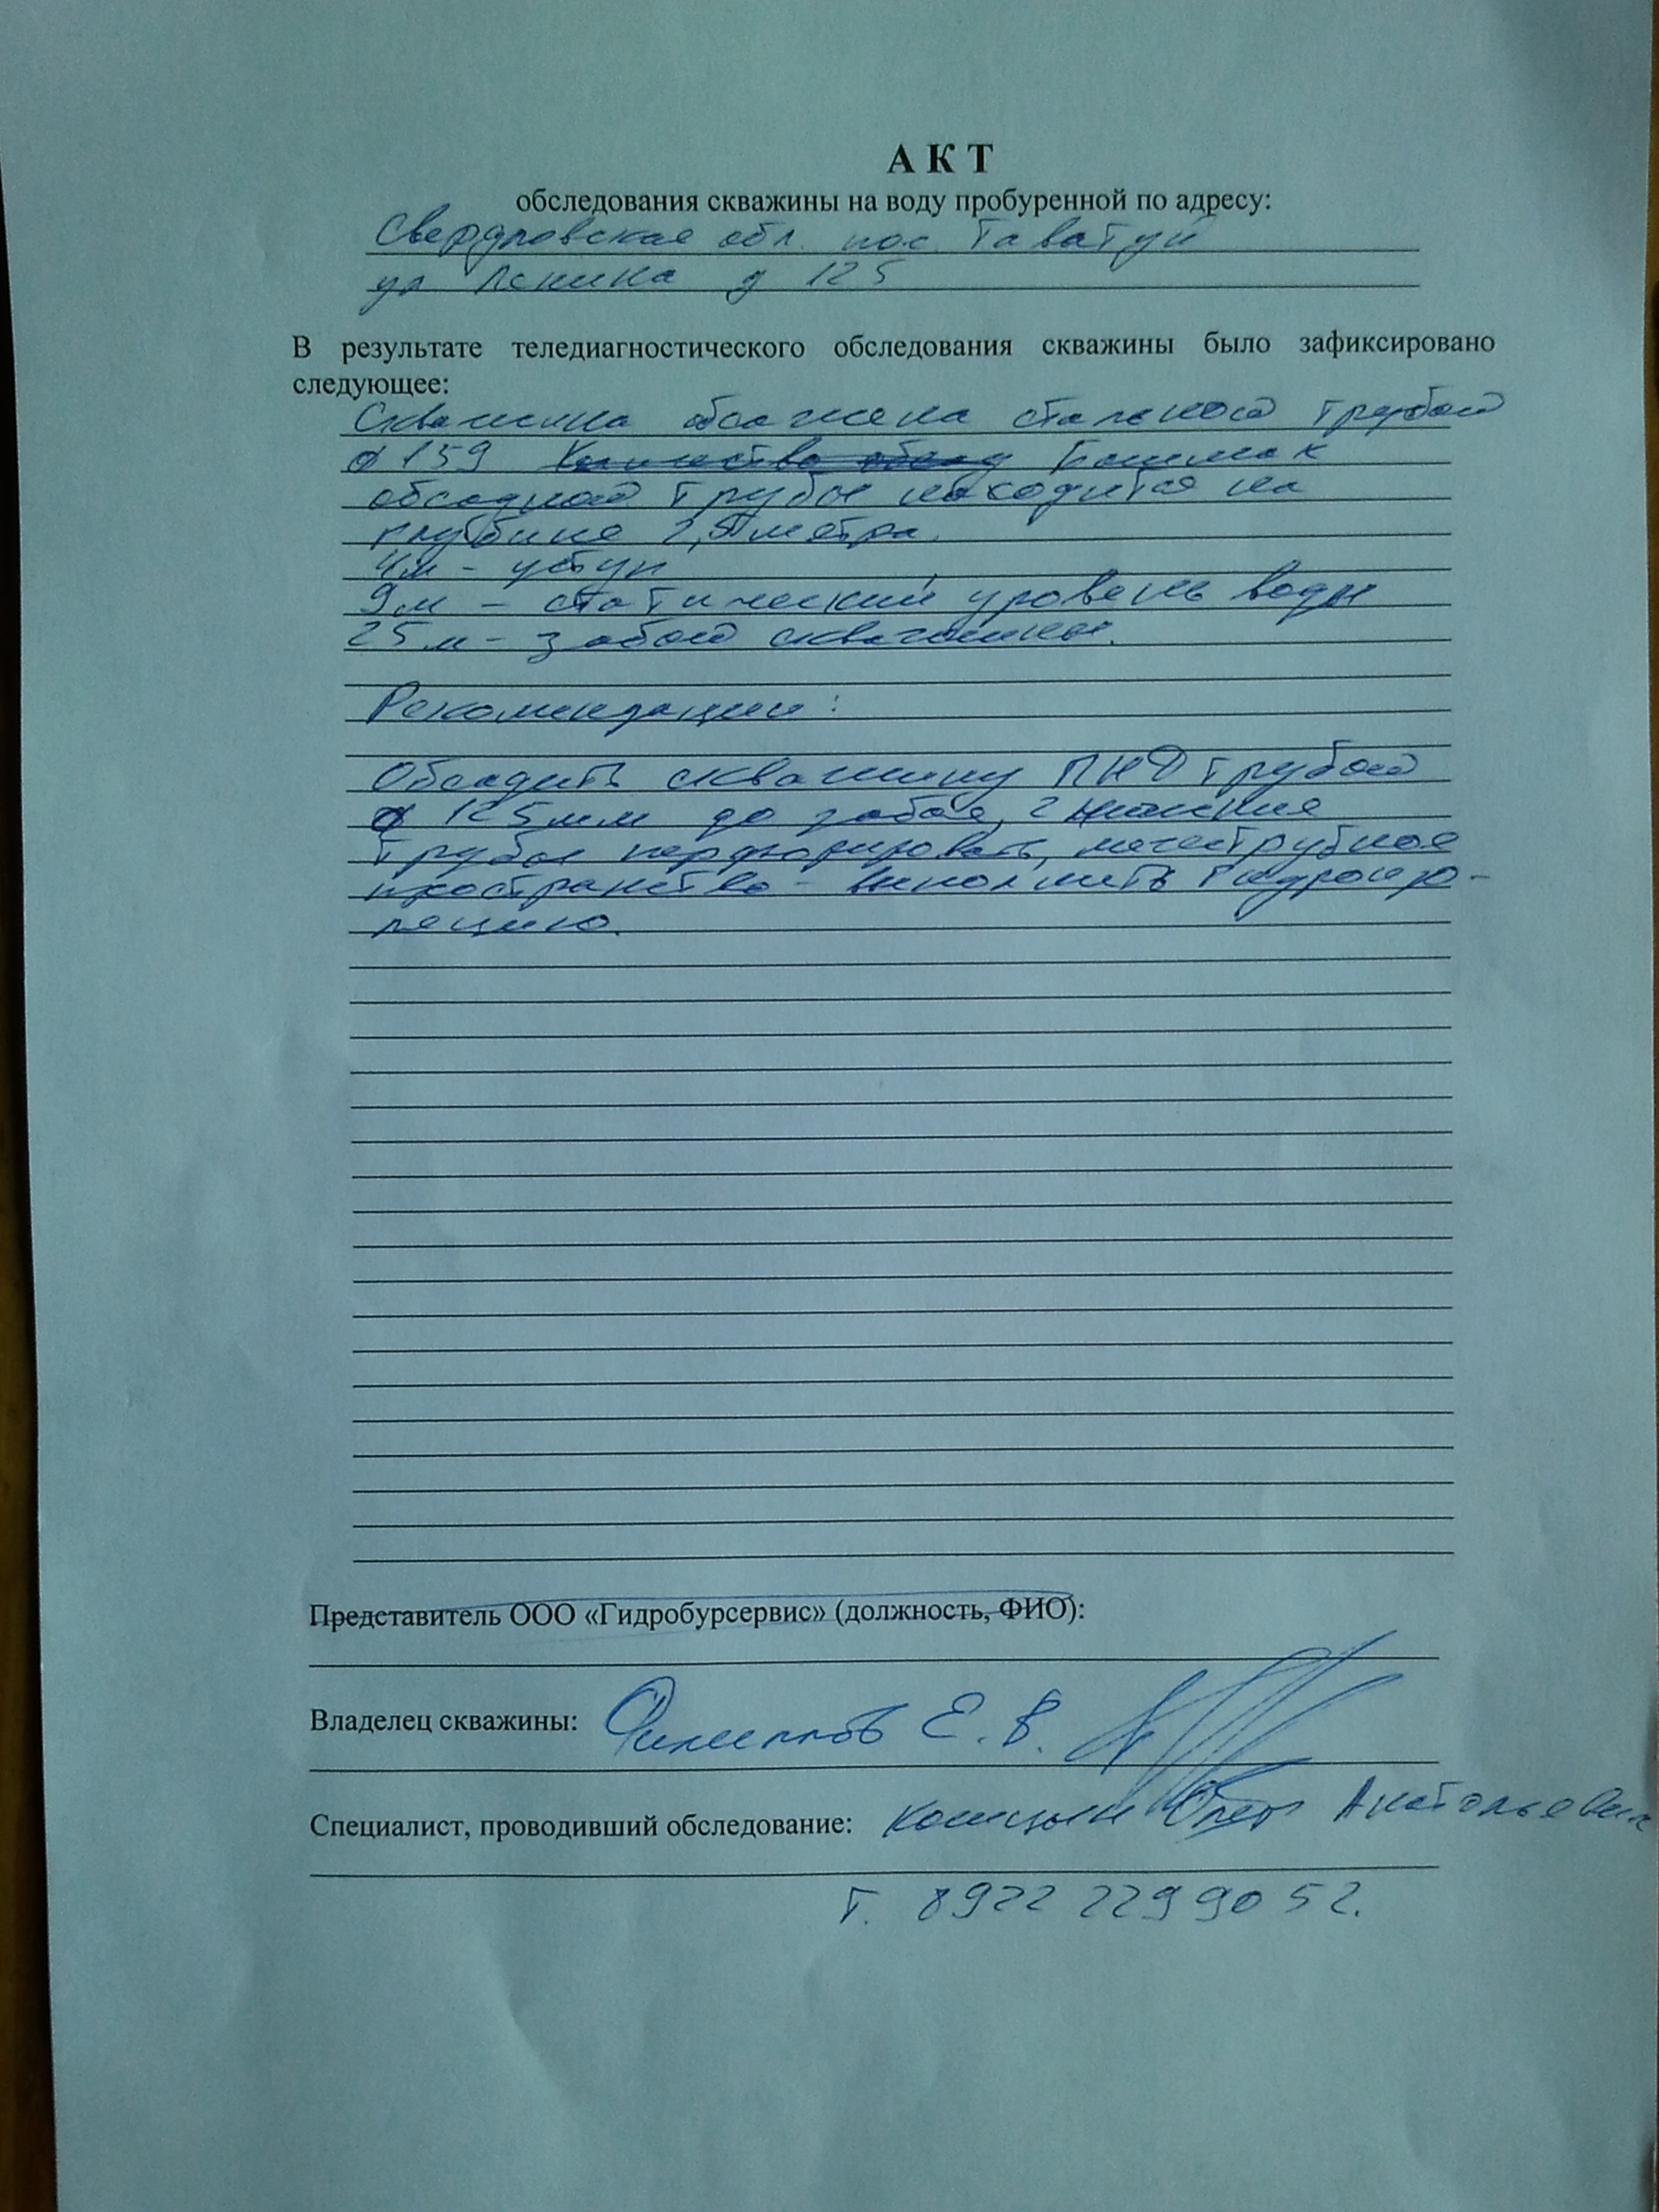 АКТ
обследования скважины на воду пробуренной по адресу:
Свердловская обл. пос. Таватуй
ул Ленина д 125
В результате теледиагностического обследования скважины было зафиксировано
следующее:
Скважина обсажена стальной трубой
ø 159 Башмак
обсадной трубы находится на
глубине метра.
4м - уступ
9м - статический уровень воды
25м - забой скважины.
Рекомендации:
Обсадить скважину ПНД трубой
ø 125мм до забоя, 2 нижние
трубы перфорировать, межтрубное
пространство - выполнить гидроизо-
ляцию.
Представитель ООО «Гидробурсервис» (должность, ФИО):
Владелец скважины: Филиппов Е. В.
Специалист, проводивший обследование: Олег Анатольевич
т. 8922 229 90 52.